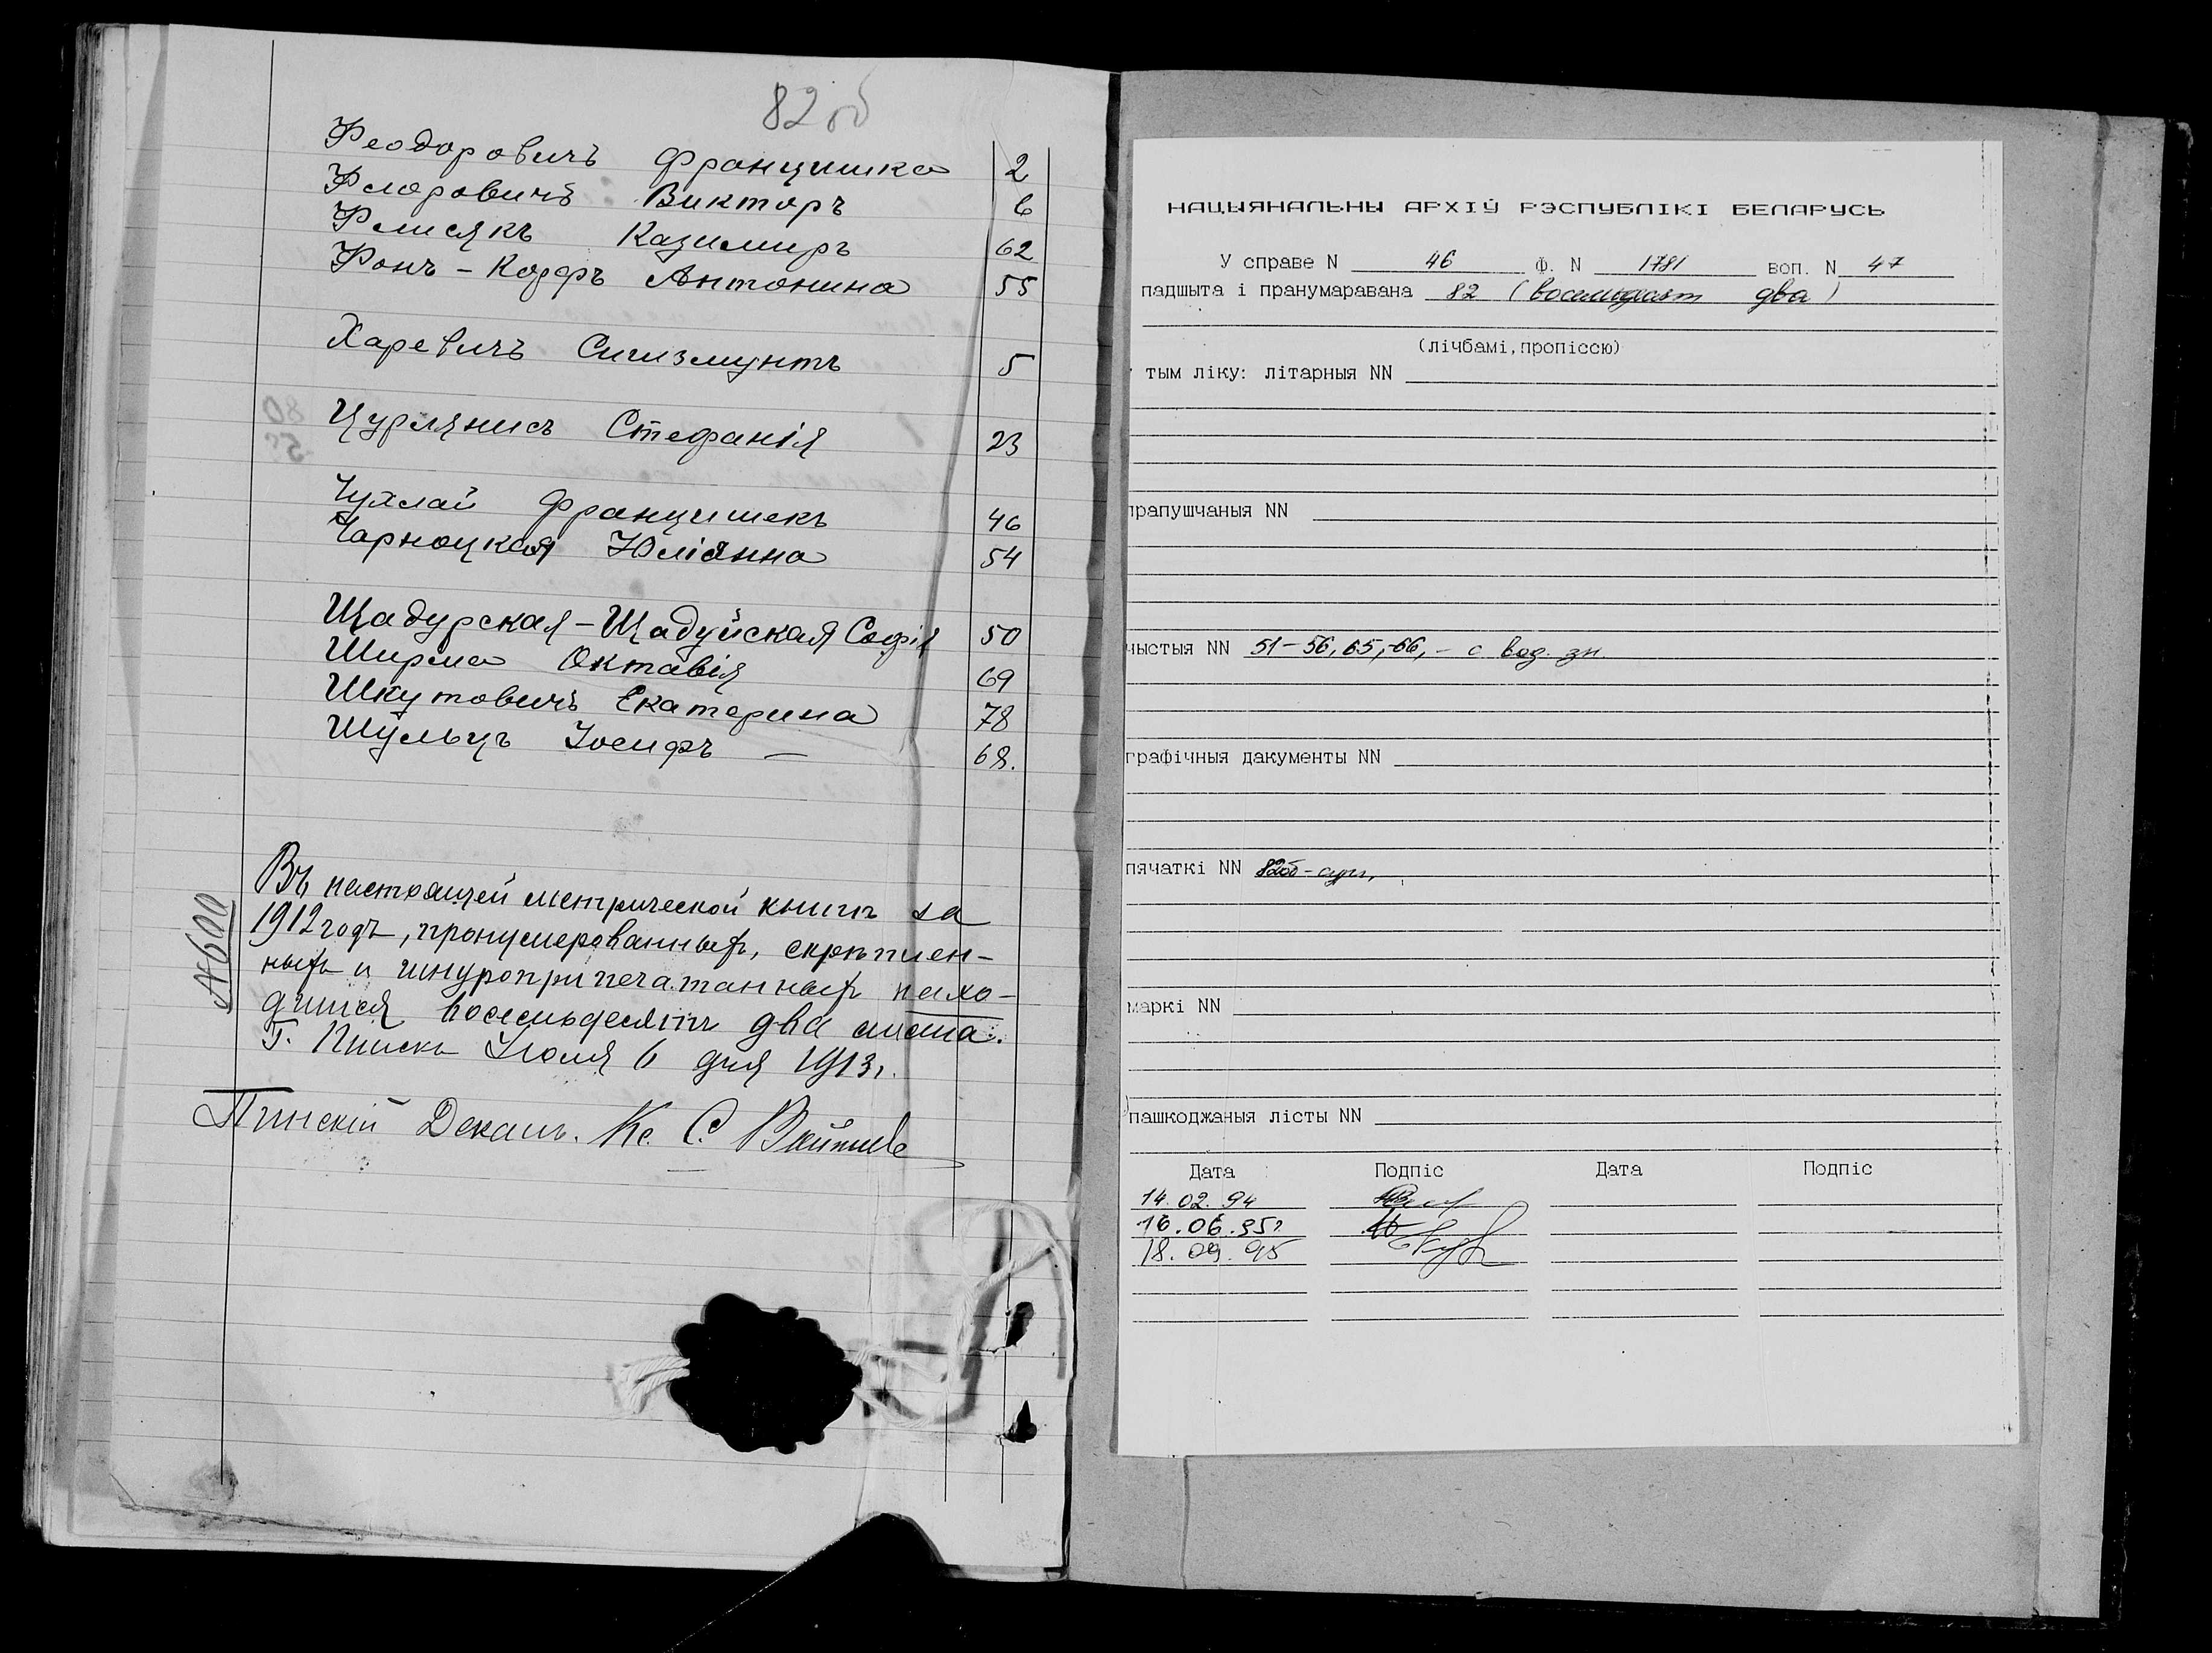 82 об
Феодоровичъ Францишка 2
Флоровичъ Викторъ 6
Флисякъ Казимиръ 62
Фонъ-Корфъ Антонина 55
Харевичъ Сигизмунтъ 5
Цурлянисъ Стефанія 23
Чухлай Францишекъ 46
Чарноцкая Юліянна 54
Щадурская-Щадуйская Софія 50
Ширма Октавія 69
Шкутовичъ Екатерина 78
Шульцъ Іосифъ — 68.
№600
Въ настоящей метрической книгѣ за
1912 годъ, пронумерованныхъ, скрѣплен-
ныхъ и шнуроприпечатанныхъ нахо-
дится восемьдесятъ два листа.
Г. Пинскъ Іюля 6 дня 1913г.
Пинскій Деканъ. Кс. С.
НАЦЫЯНАЛЬНЫ АРХІЎ РЭСПУБЛІКІ БЕЛАРУСЬ
У справе N 46 Ф. N 1781 воп. N 47
падшыта і пранумаравана 82 (восемьдесят два)
(лічбамі,пропіссю)
тым ліку: літарныя NN
прапушчаныя NN
чыстыя NN 51-56, 65,-66, - с вод. зн.
графічныя дакументы NN
пячаткі NN 82об - сург.
маркі NN
пашкоджаныя лісты NN
Дата Подпіс Дата Подпіс
14.02.94
16.06.95г
18.09.95